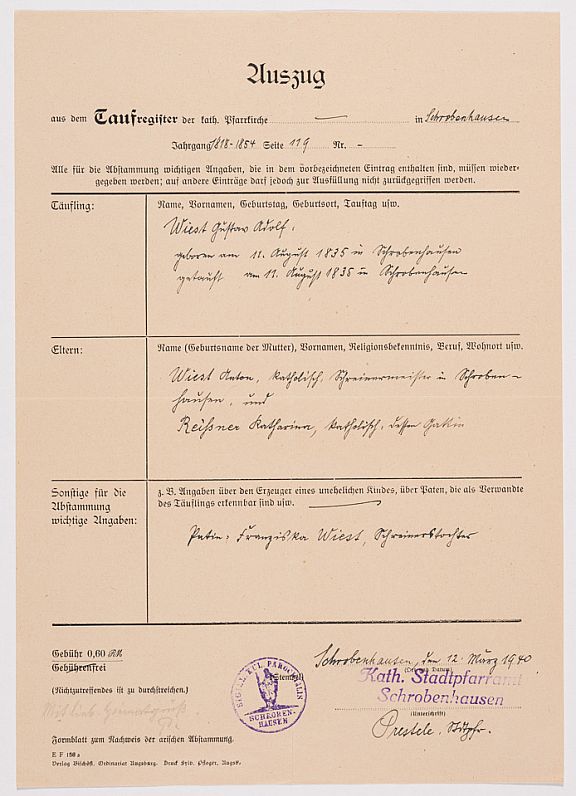 Auszug
aus dem Taufregister der kath. Pfarrkirche — in Schrobenhausen
Jahrgang 1818-1854 Seite 119 Nr. -
Alle für die Abstammung wichtigen Angaben, die in dem vorbezeichneten Eintrag enthalten sind, müssen wieder-
gegeben werden; auf andere Einträge darf jedoch zur Ausfüllung nicht zurückgegriffen werden.
Täufling:
Name, Vornamen, Geburtstag, Geburtsort, Tauftag usw.
Wiest Gustav Adolf,
geboren am 11. August 1835 in Schrobenhausen
getauft am 11. August 1835 in Schrobenhausen
Eltern:
Name (Geburtsname der Mutter), Vornamen, Religionsbekenntnis, Beruf, Wohnort usw.
Wiest Anton, katholisch, Schreinermeister in Schroben-
hausen, und
Reißner Katharina, katholisch, dessen Gattin
Sonstige für die
Abstammung
wichtige Angaben:
z. B. Angaben über den Erzeuger eines unehelichen Kindes, über Paten, die als Verwandte
des Täuflings erkennbar sind usw.
Patin: Franziska Wiest, Schreinerstochter
Gebühr 0,60 RM
Gebührenfrei
(Nichtzutreffendes ist zu durchstreichen.)
Formblatt zum Nachweis der arischen Abstammung.
E F 158 a
Verlag Bischöfl. Ordinariat Augsburg. Druck Frdr. Pfloger, Augsb.
(Stempel)
SIGILL. ECL. PAROCHIALIS
SCHROBEN-
HAUSEN
Schrobenhausen, den 12. März 1940
(Ort und Datum)
Kath. Stadtpfarramt
Schrobenhausen
(Unterschrift)
Prestele, Stdtpfr.